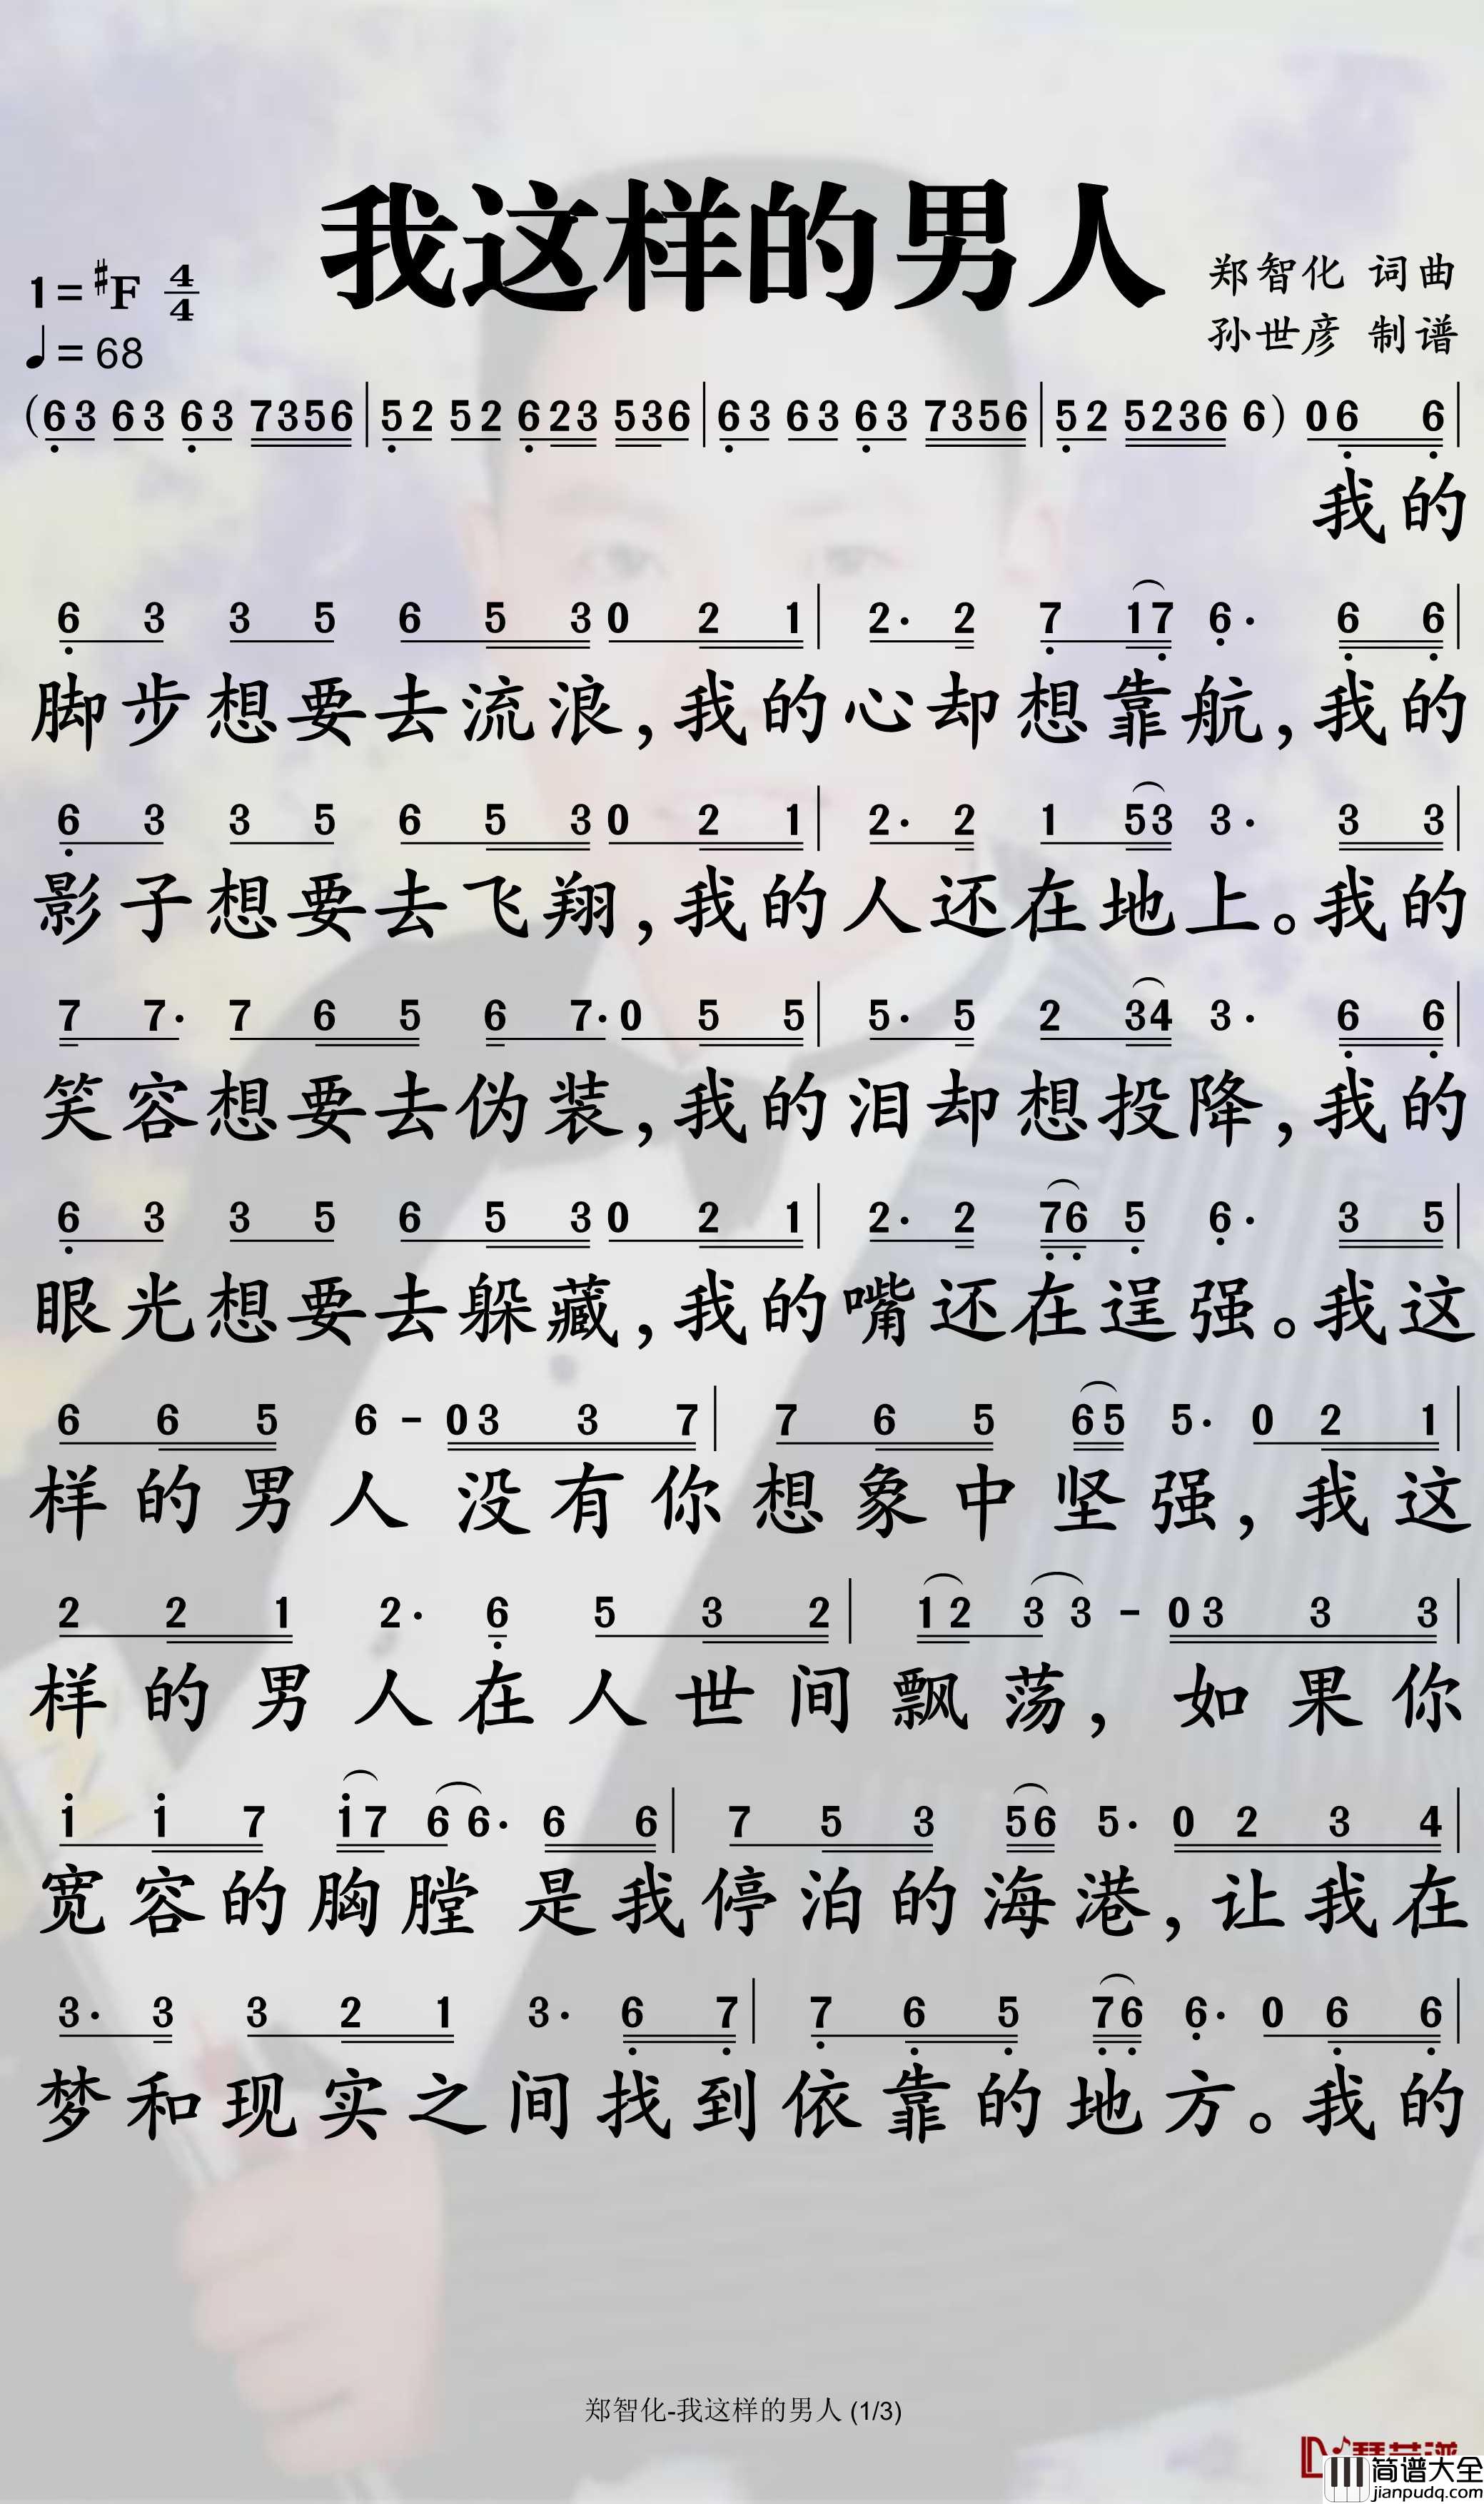 我这样的男人
1=#F 4/4
郑智化 词曲
♩=68
孙世彦 制谱
(63 63 63 7356|52 52 623 536|63 63 63 7356|52 5236 6) 06 6|
我的
6 3 3 5 6 5 3 0 2 1|2. 2 7 17 6. 6 6|
脚步想要去流浪,我的心却想靠航,我的
6 3 3 5 6 5 3 0 2 1|2. 2 1 53 3. 3 3|
影子想要去飞翔,我的人还在地上。我的
7 7. 7 6 5 6 7. 0 5 5|5. 5 2 34 3. 6 6|
笑容想要去伪装,我的泪却想投降,我的
6 3 3 5 6 5 3 0 2 1|2. 2 76 5 6. 3 5|
眼光想要去躲藏,我的嘴还在逞强。我这
6 6 5 6 - 03 3 7|7 6 5 65 5. 0 2 1|
样的男人 没有你想象中坚强,我这
2 2 1 2. 6 5 3 2|12 3 3 - 03 3 3|
样的男人在人世间飘荡, 如果你
1 1 7 17 6 6. 6 6|7 5 3 56 5. 0 2 3 4|
宽容的胸膛 是我停泊的海港,让我在
3. 3 3 2 1 3. 6 7|7 6 5 76 6. 0 6 6|
梦和现实之间找到依靠的地方。我的
郑智化-我这样的男人 (1/3)
简谱大全
jianpudq.com